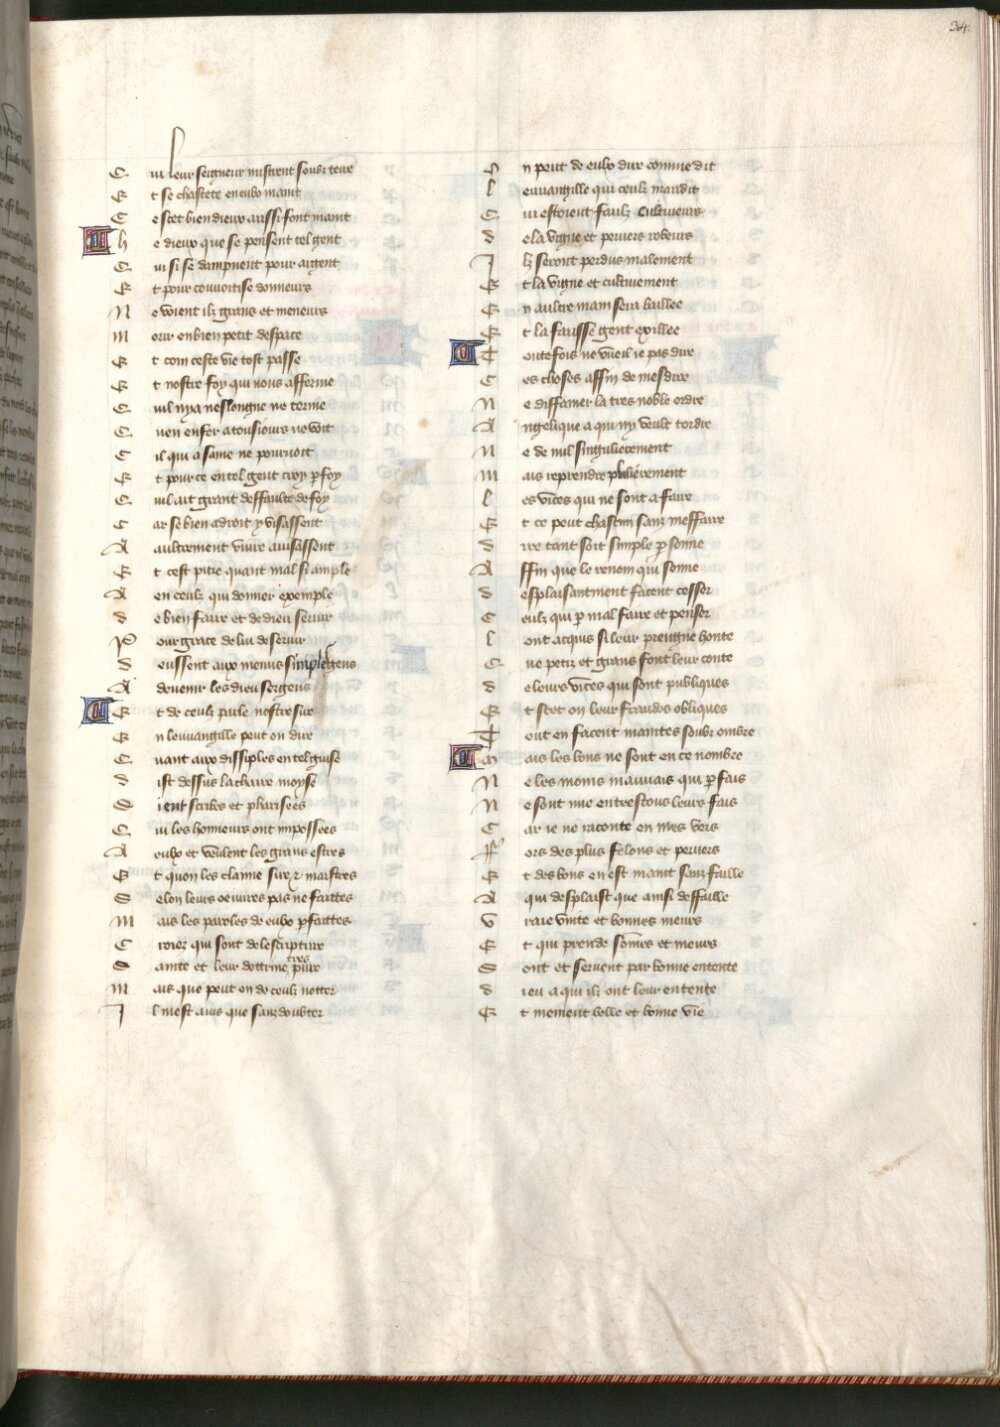 34
Q ui leur seigneur mistrent soubz terre
E t se chastete en eulx maint
C e scet bien dieux aussi font maint
h e dieux que se pensent tel gent
Q ui si se dampnent pour argent
E t pour convoitise donneurs
N e voient ilz grans et meneurs
M orir en bien petit despace
E t com ceste vie tost passe
E t nostre foy qui nous afferme
Q uil nya neslongne ne terme
Q uen enfer a tousiours ne voit
C il qui a same ne pourvoit
E t pour ce en tel gent croy p foy
Q uil ait grant deffaulte de foy
C ar se bien adroit y visassent
A aultrement vivre avisassent
E t cest pitie quant mal si ample
A en ceulz qui donner exemple
d e bien faire et de dieu servir
P our grace de lui deservir
d eussent aux menus simples gens
A devenir les dieu sergens
E t de ceulz parle nostre sire
E n leuvangille peut on dire
Q uant aux dissiples en tel guise
d ist dessus la chaire moyse
S ient scribes et pharisees
Q ui les honneurs ont impossees
A eulx et veulent les grans estres
E t quon les claime sires z maistres
S elon leurs oeuvres pas ne faittes
M ais les paroles de eulx pfaittes
C roiez qui sont de lescripture
S ainte et leur dottrine tres pure
M ais que peut on de ceulz notter
I l mest avis que sanz doubter
O n peut de eulx dire comme dit
L euvangille qui ceulz maudit
Q ui estoient faulz cultiveurs
d e la vigne et pervers robeurs
I lz seront perdus malement
E t la vigne et cultivement
E n aultre main sera baillee
E t la faussse gent exillee
T outefois ne vueil ie pas dire
C es choses affin de mesdire
N e diffamer la tres noble ordre
A ngelique a qui ny veult tordre
N e de nul singulierement
M ais reprendre publiement
L es vices qui ne sont a faire
E t ce peut chascun sanz meffaire
d ire tant soit simple psonne
A ffin que le renom qui sonne
d esplaisantment facent cesser
C eulz qui p mal faire et penser
L ont acquis si leur preingne honte
Q ue petiz et grans font leur conte
d e leurs vices qui sont publiques
E t scet on leur fraudes obliques
T out en facent maintes soubz ombre
M ais les bons ne sont en ce nombre
N e les moins mauvais qui pfais
N e sont mie entrestous leurs fais
C ar ie ne raconte en mes vers
F ors des plus felons et pervers
E t des bons en est maint sanz faille
A qui desplaist que ainsi deffaille
V raie vnite et bonnes meurs
E t qui prende sommes et meurs
S ont et servent par bonne entente
d ieu a qui ilz ont leur entente
E t mennent belle et bonne vie